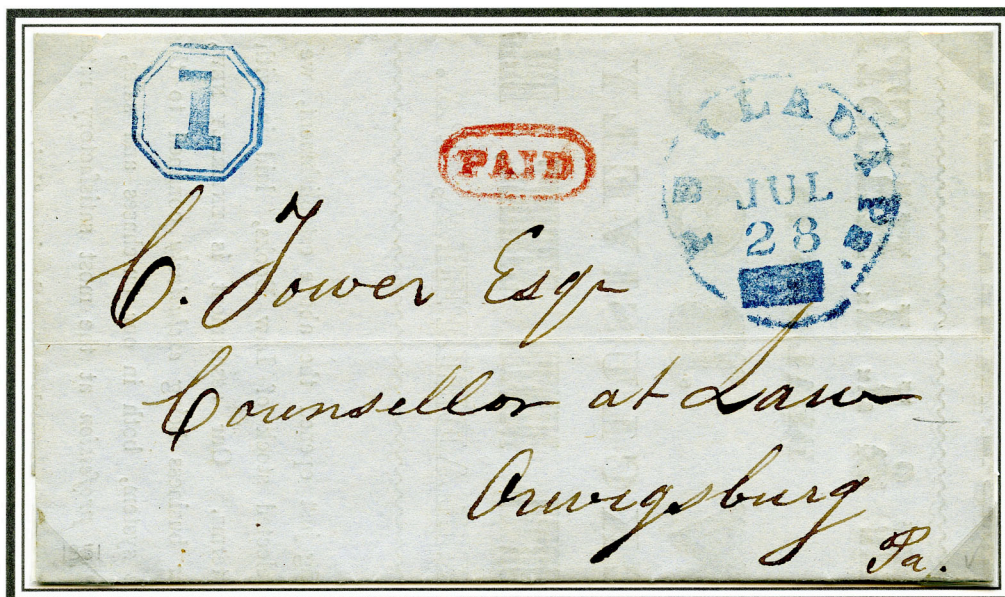 1
PAID
JUL
28
C. Tower Esqr
Counsellor at Law
Orwigsburg
Pa.